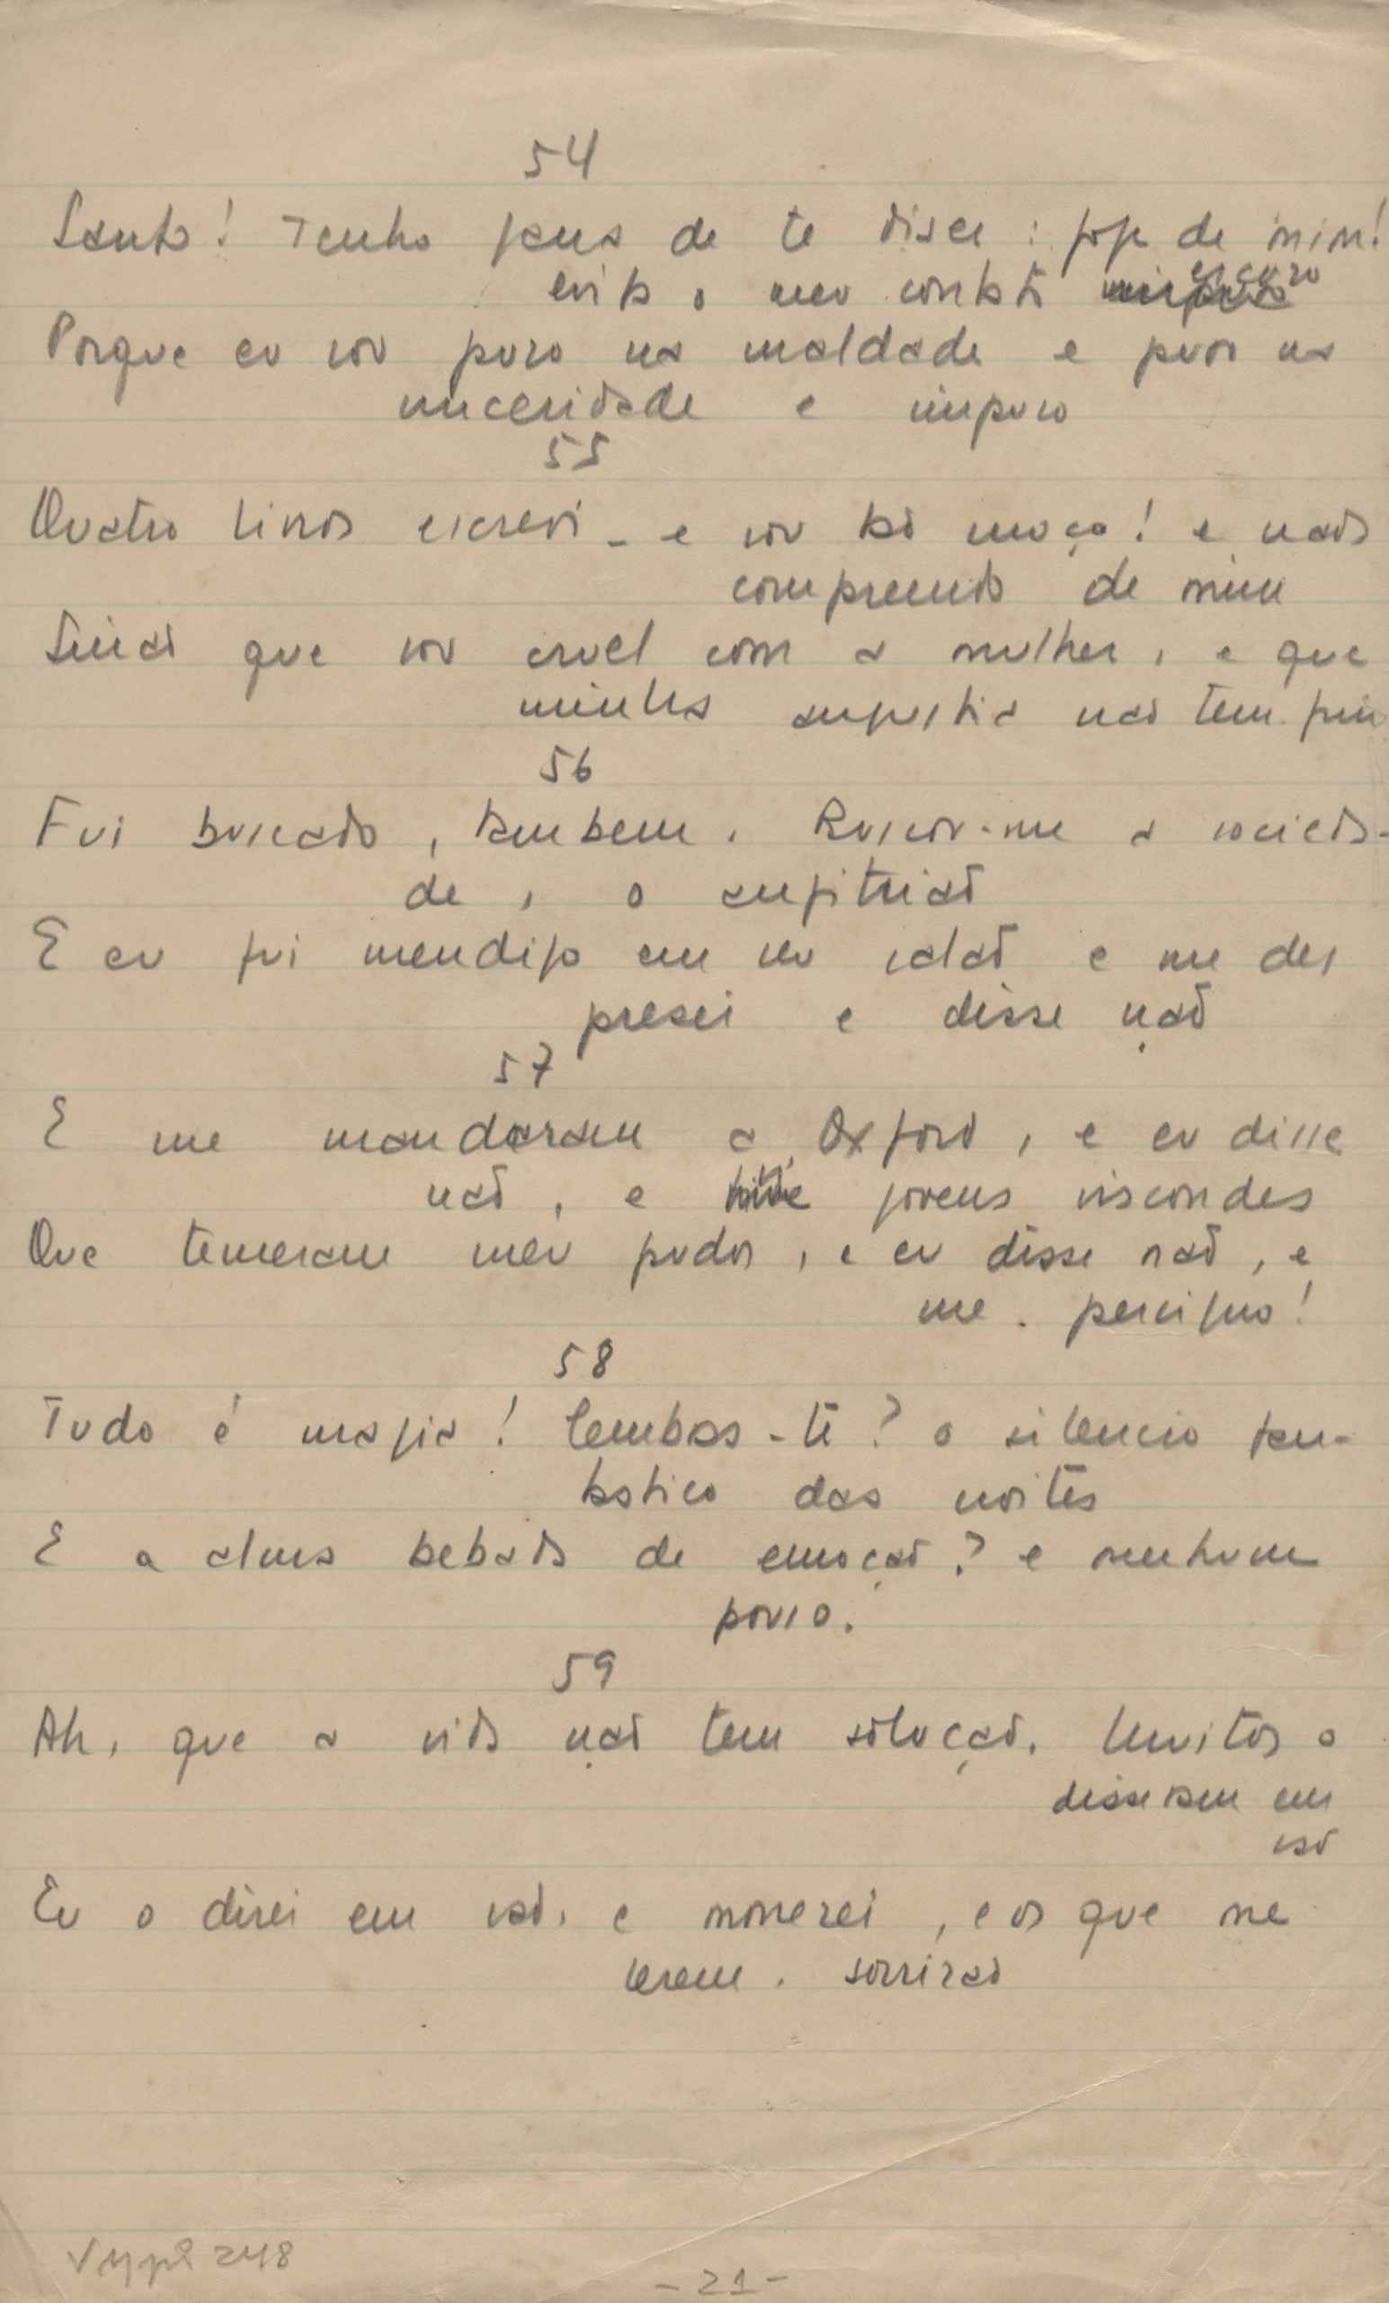 54
Santo! Tenho pena de te diser: foge de mim!
evita o meu contato escuro
Porque eu sou puro na maldade e puro na
sinceridade e impuro
55
Quatro livros escrevi - e sou tão moço! e nada
compreendo de mim
Sinão que sou cruel com a mulher, e que
minha angustia não tem fim
56
Fui buscado, tambem. Buscou-me a socieda-
de, o anfitrião
E eu fui mendigo em seu salão e me des
presei e disse não
57
E me mandaram a Oxford, e eu disse
não, e jovens viscondes
Que temeram meu pudor, e eu disse não, e
me persigno!
58
Tudo é magia! Lembras-te? o silencio fan-
tastico das noites
E a alma bebada de emoção? e nenhum
pouso.
59
Ah, que a vida não tem solução. Muitos o
disseram em
vão
Eu o direi em vão, e morrerei, e os que me
lerem, sorrirão
VMpi 248
- 21 -